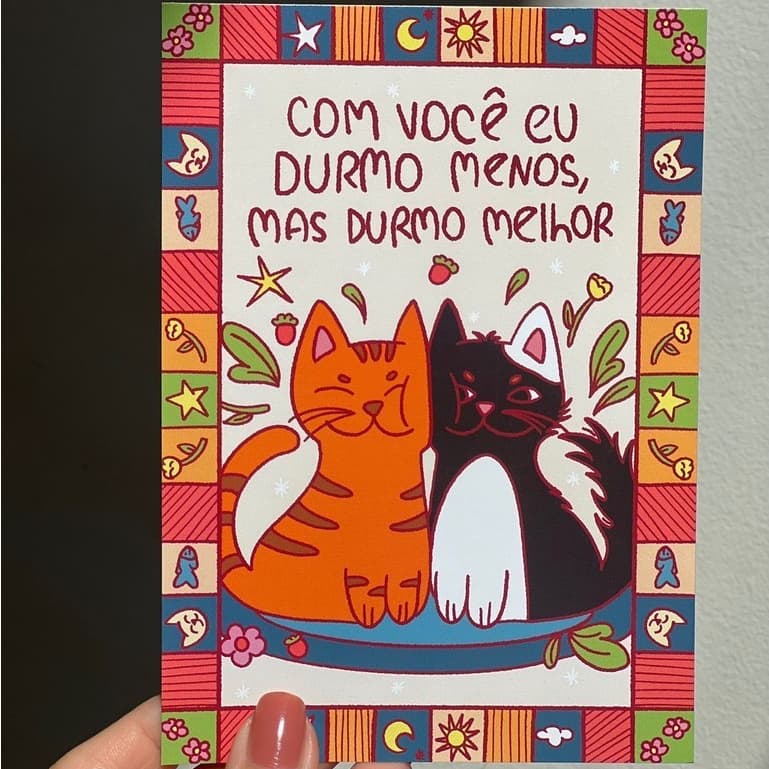 COM VOCÊ EU
DURMO MENOS,
MAS DURMO MELHOR